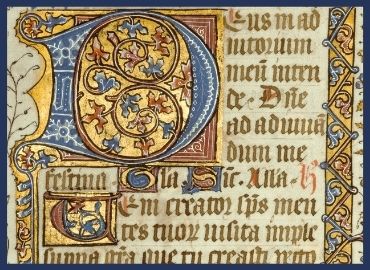 Deus in ad
iutorium
meū inten
de · Dn̄e
ad adiuuā
dum me
festina Gla Sic̄. Alla. h̄
Veni creator sp̄s men
tes tuoꝝ uisita imple
superna gr̄a que tu creasti